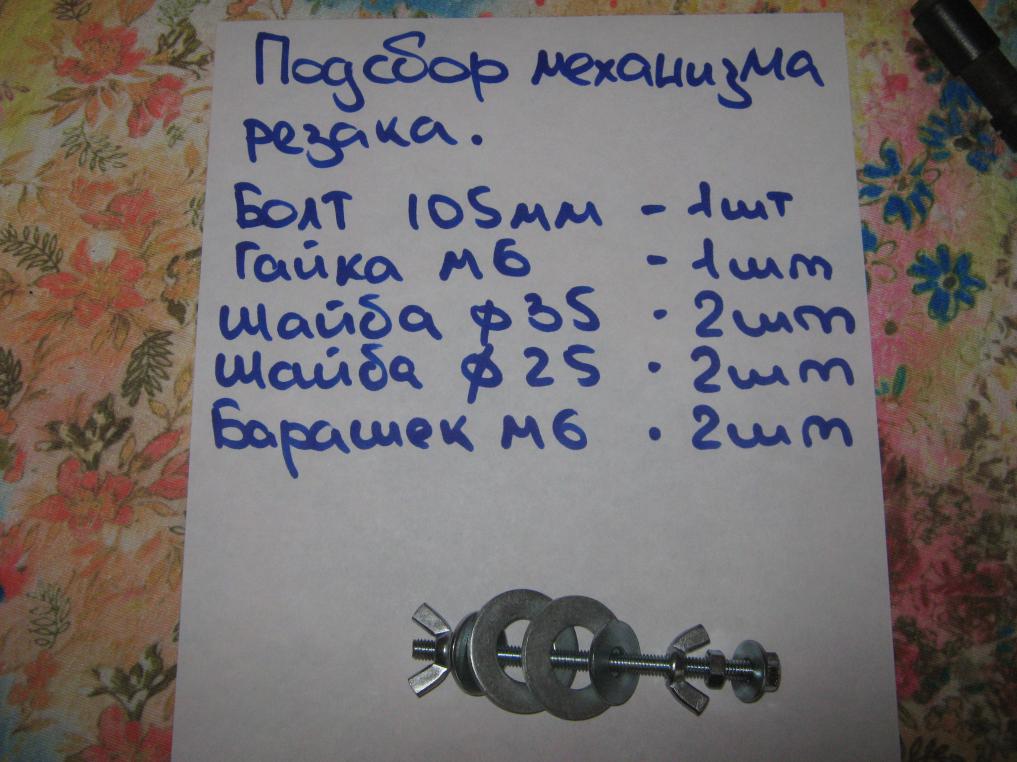 Подсбор механизма
резака.
Болт 105мм - 1шт
Гайка М6 - 1шт
Шайба ф35 · 2шт
Шайба ф25 · 2шт
Барашек М6 · 2шт